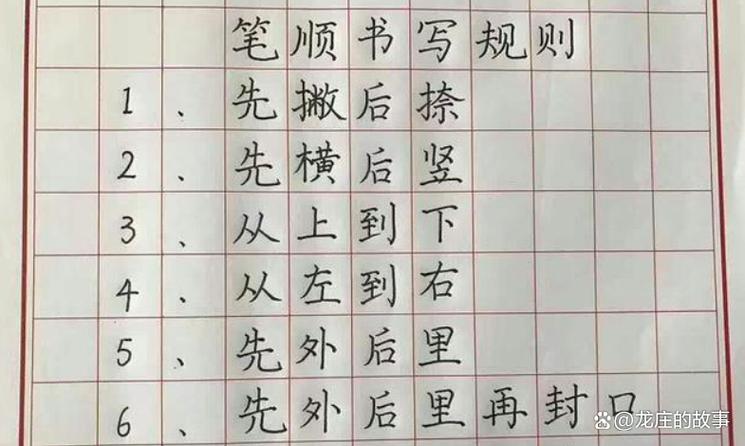 笔顺书写规则
1、先撇后捺
2、先横后竖
3、从上到下
4、从左到右
5、先外后里
6、先外后里再封口
龙庄的故事